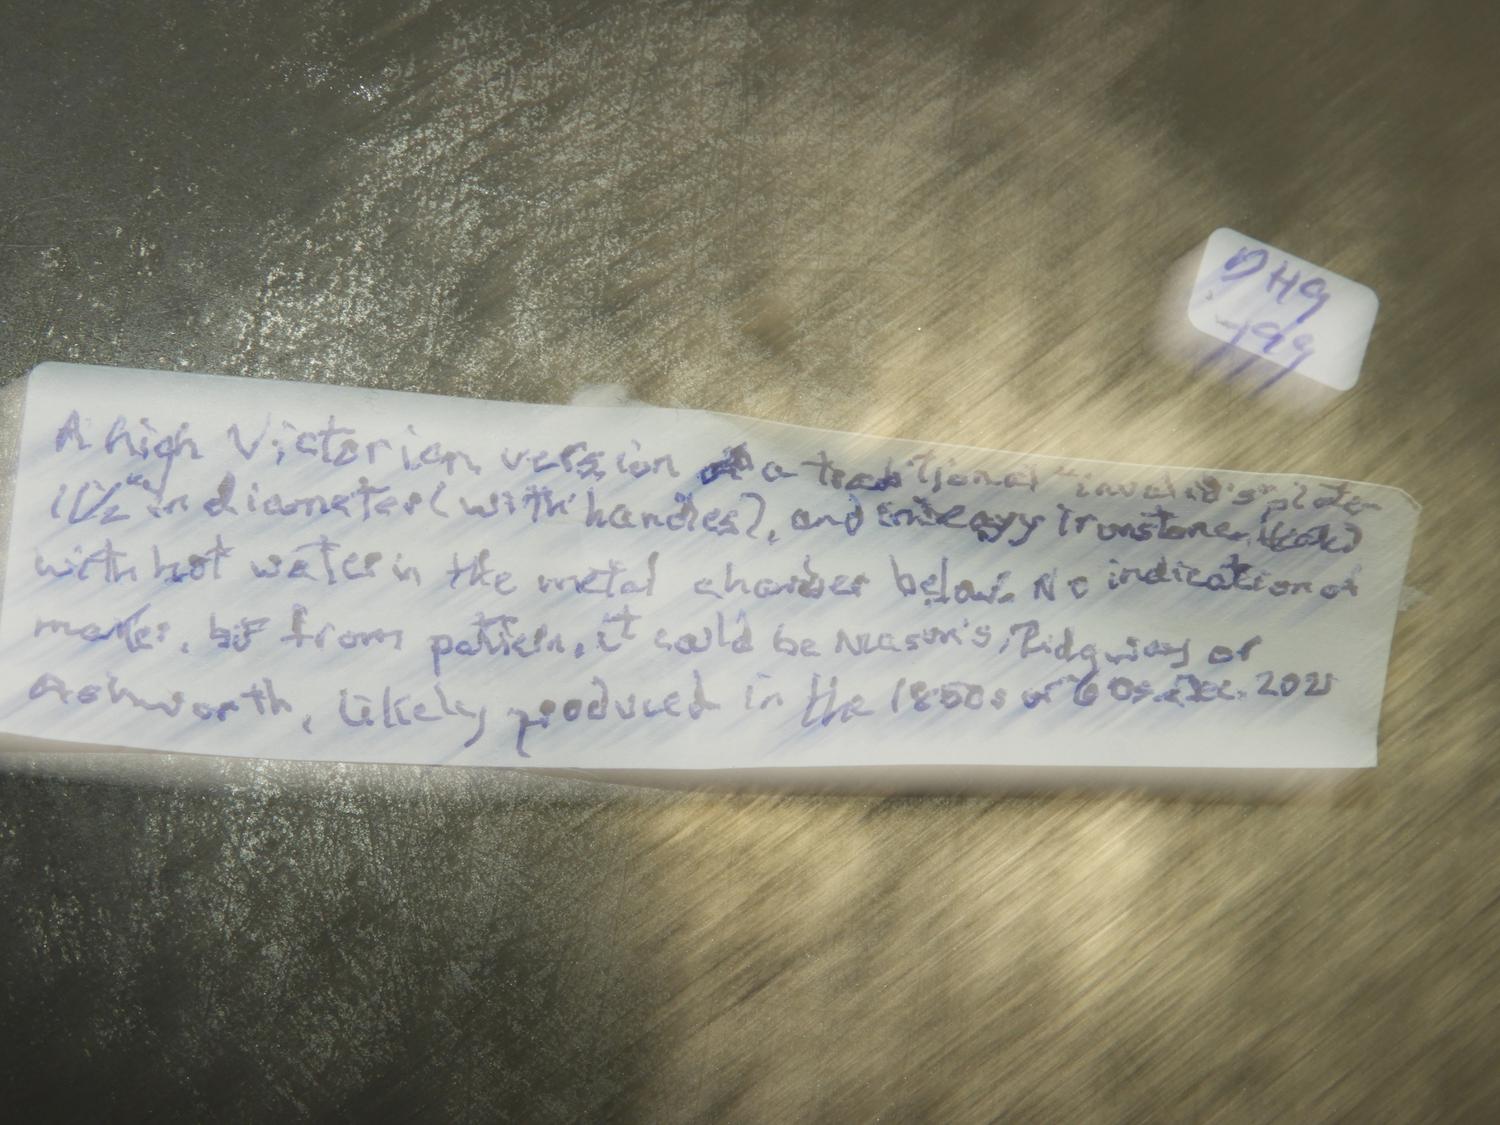 A high Victorian version of a traditional "invalid's plate"
11½" in diameter (with handles), and in heavy ironstone,
with hot water in the metal chamber below. No indication of
maker, but from pattern, it could be Mason's, Ridgway or
Ashworth, likely produced in the 1850s or 60s. Dec. 2021
DHG